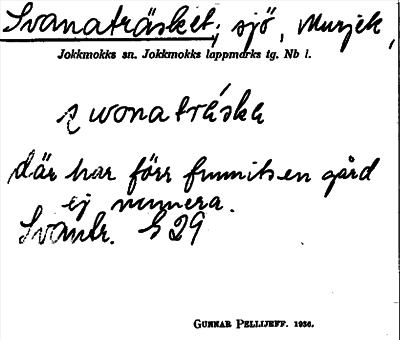 Svanaträsket; sjö, Murjek,
Jokkmokks sn. Jokkmokks lappmarks tg. Nb l.
därhar förr funnits en gård
ej numera.
Svantr. G 29
GUNNAR PELLIJEFF. 1936.